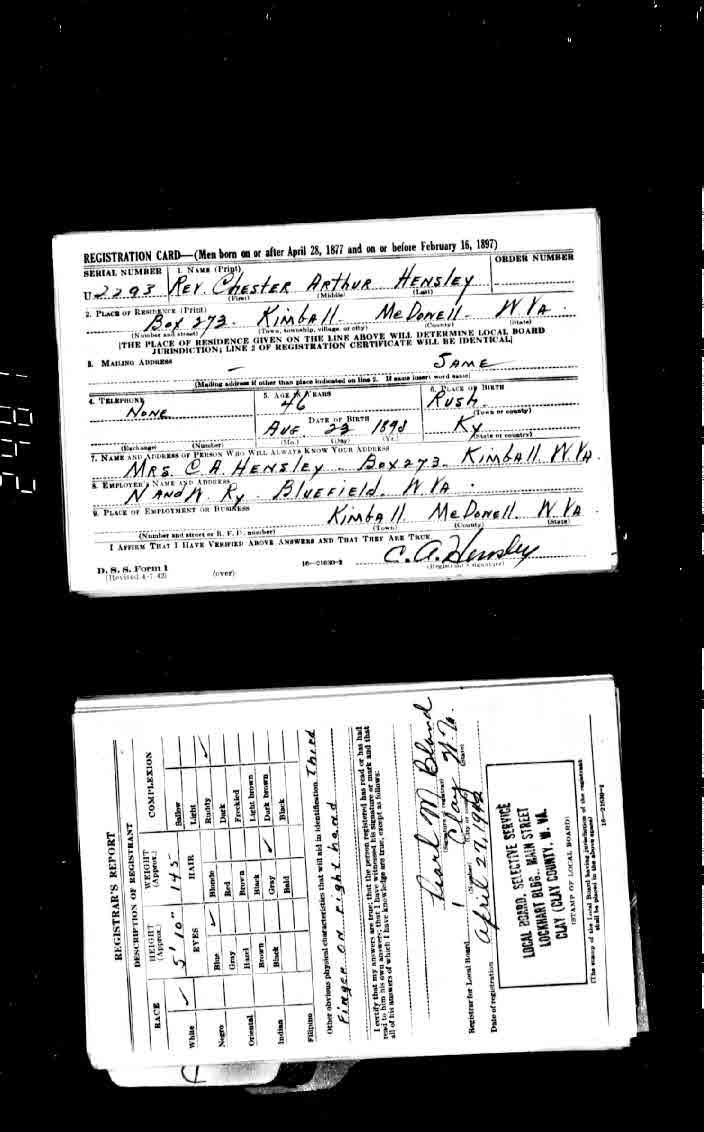 REGISTRATION CARD—(Men born on or after April 28, 1877 and on or before February 16, 1897)
SERIAL NUMBER 1. NAME (Print) ORDER NUMBER
U 2293 REV. CHESTER ARTHUR HENSLEY
(First) (Middle) (Last)
2. PLACE OF RESIDENCE (Print)
Box 273. Kimball McDowell W VA.
(Number and street) (Town, township, village, or city) (County) (State)
[THE PLACE OF RESIDENCE GIVEN ON THE LINE ABOVE WILL DETERMINE LOCAL BOARD
JURISDICTION; LINE 2 OF REGISTRATION CERTIFICATE WILL BE IDENTICAL]
3. MAILING ADDRESS
SAME
[Mailing address if other than place indicated on line 2. If same insert word same]
4. TELEPHONE 5. AGE IN YEARS 6. PLACE OF BIRTH
NONE 46 RUSH
DATE OF BIRTH (Town or county)
AUG 23 1898 Ky
(Exchange) (Number) (Mo.) (Day) (Yr.) (State or country)
7. NAME AND ADDRESS OF PERSON WHO WILL ALWAYS KNOW YOUR ADDRESS
MRS. C. A. HENSLEY Box 273. Kimball W. VA.
8. EMPLOYER'S NAME AND ADDRESS
N AND W. Ry. BLUEFIELD. W. VA.
9. PLACE OF EMPLOYMENT OR BUSINESS
Kimball McDowell W. VA
(Number and street or R. F. D. number) (Town) (County) (State)
I AFFIRM THAT I HAVE VERIFIED ABOVE ANSWERS AND THAT THEY ARE TRUE.
C. A. Hensley
D. S. S. Form 1 16—21630-2 (Registrant's signature)
(Revised 4-1-42) (over)
REGISTRAR'S REPORT
DESCRIPTION OF REGISTRANT
RACE HEIGHT (Approx.) WEIGHT (Approx.) COMPLEXION
5' 10" 145
White ✓ EYES HAIR Sallow
Light
Negro Blue ✓ Blonde Ruddy ✓
Gray Red Dark
Oriental Hazel Brown Freckled
Brown Black Light brown
Indian Black Gray ✓ Dark brown
Bald Black
Filipino
Other obvious physical characteristics that will aid in identification Third
Finger on right hand
I certify that my answers are true; that the person registered has read or has had
read to him his own answers; that I have witnessed his signature or mark and that
all of his answers of which I have knowledge are true, except as follows:
Pearl M Bland
(Signature of registrar)
Registrar for Local Board 1 Clay W. Va.
(Number) (City or county) (State)
Date of registration April 27, 1942
LOCAL BOARD, SELECTIVE SERVICE
LOCKHART BLDG., MAIN STREET
CLAY (CLAY COUNTY, W. VA.
(STAMP OF LOCAL BOARD)
(The stamp of the Local Board having jurisdiction of the registrant
shall be placed in the above space)
16—21630-1